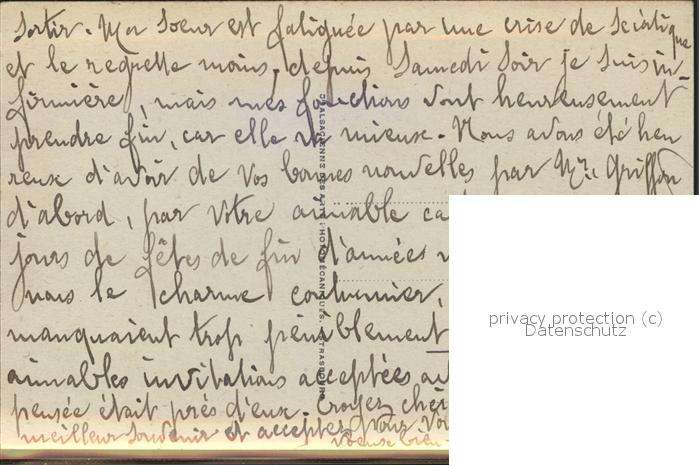 sortir. Ma Soeur est fatiguée par une crise de sciatique
et le regrette moins. depuis Samedi Soir je suis in-
firmière, mais mes fonctions vont heureusement
prendre fin, car elle va mieux. Nous avons été heu
reuse d'avoir de vos bonnes nouvelles par Mme Griffon
d'abord, par votre aimable ca
jours de fêtes de fin d'année
mais le charme coutumier,
manquaient trop péniblement
aimables invitations acceptées
pensée était près d'eux. Croyez chè
meilleur souvenir et acceptez pour vo
privacy protection (c)
Datenschutz